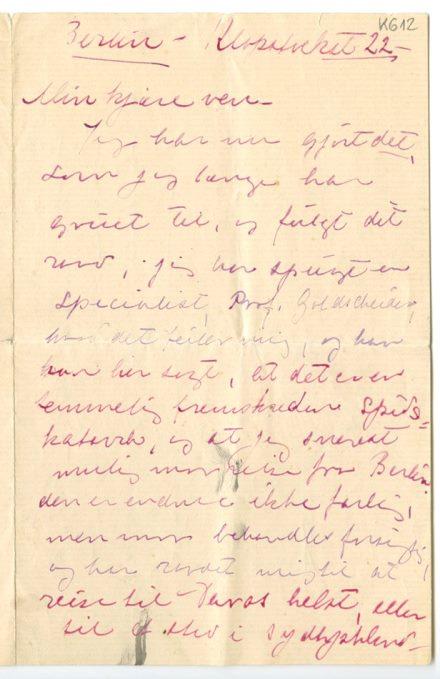 K612
Berlin – Klopstocket 22 –
Min kjære ven –
Jeg har nu gjort det,
som jeg længe har
gruet til, og fulgt dit
raad, jeg har spurgt en
specialist, Prof. Goldscheider,
hvad det feiler mig, og han
har her sagt, at det er en
temmelig fremskreden Spids-
katarrh, og at jeg snarest
mulig maa reise fra Berlin.
den er endnu ikke farlig,
men maa behandles forsigtig,
og har raadet mig til at
reise til Davos helst, eller
til et sted i Sydtyskland –